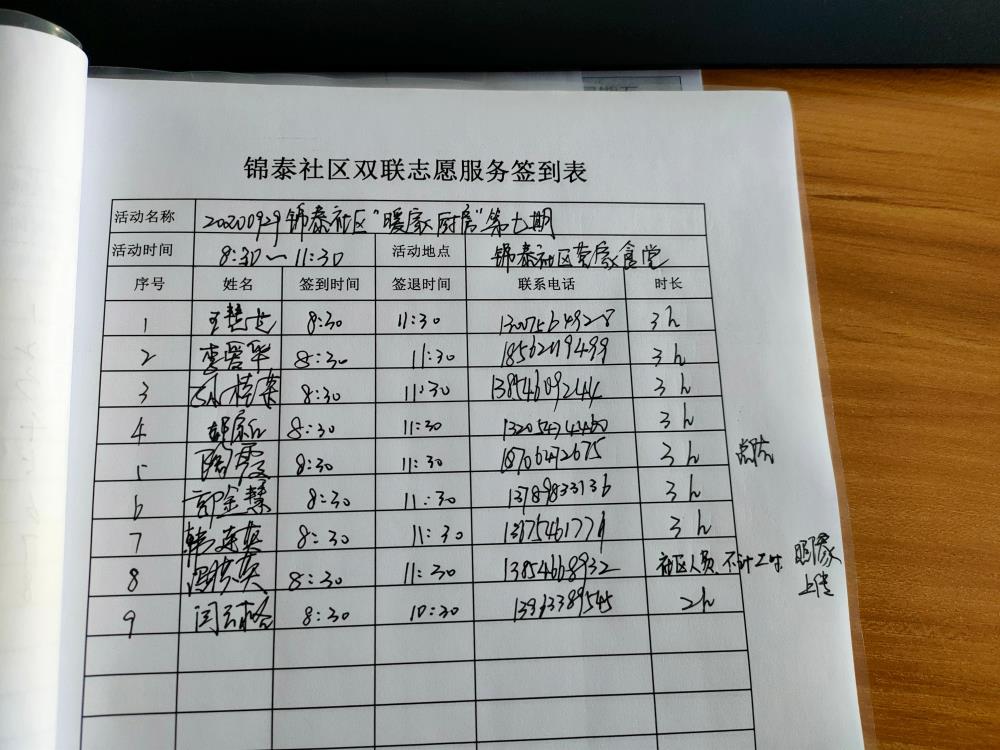 锦泰社区双联志愿服务签到表
活动名称 20200929锦泰社区"暖家厨房"第七期
活动时间 8:30—11:30 活动地点 锦泰社区 食堂
序号 姓名 签到时间 签退时间 联系电话 时长
1 8:30 11:30 13007564928 3h
2 李爱华 8:30 11:30 18562119499 3h
3 8:30 11:30 3h
4 8:30 11:30 3h
5 陶霞 8:30 11:30 18706472675 3h
6 郭金慧 8:30 11:30 13789833136 3h
7 韩建英 8:30 11:30 3h
8 8:30 11:30 13854668932 社区人员、不计工时
9 闫 8:30 10:30 13963389545 2h
上传